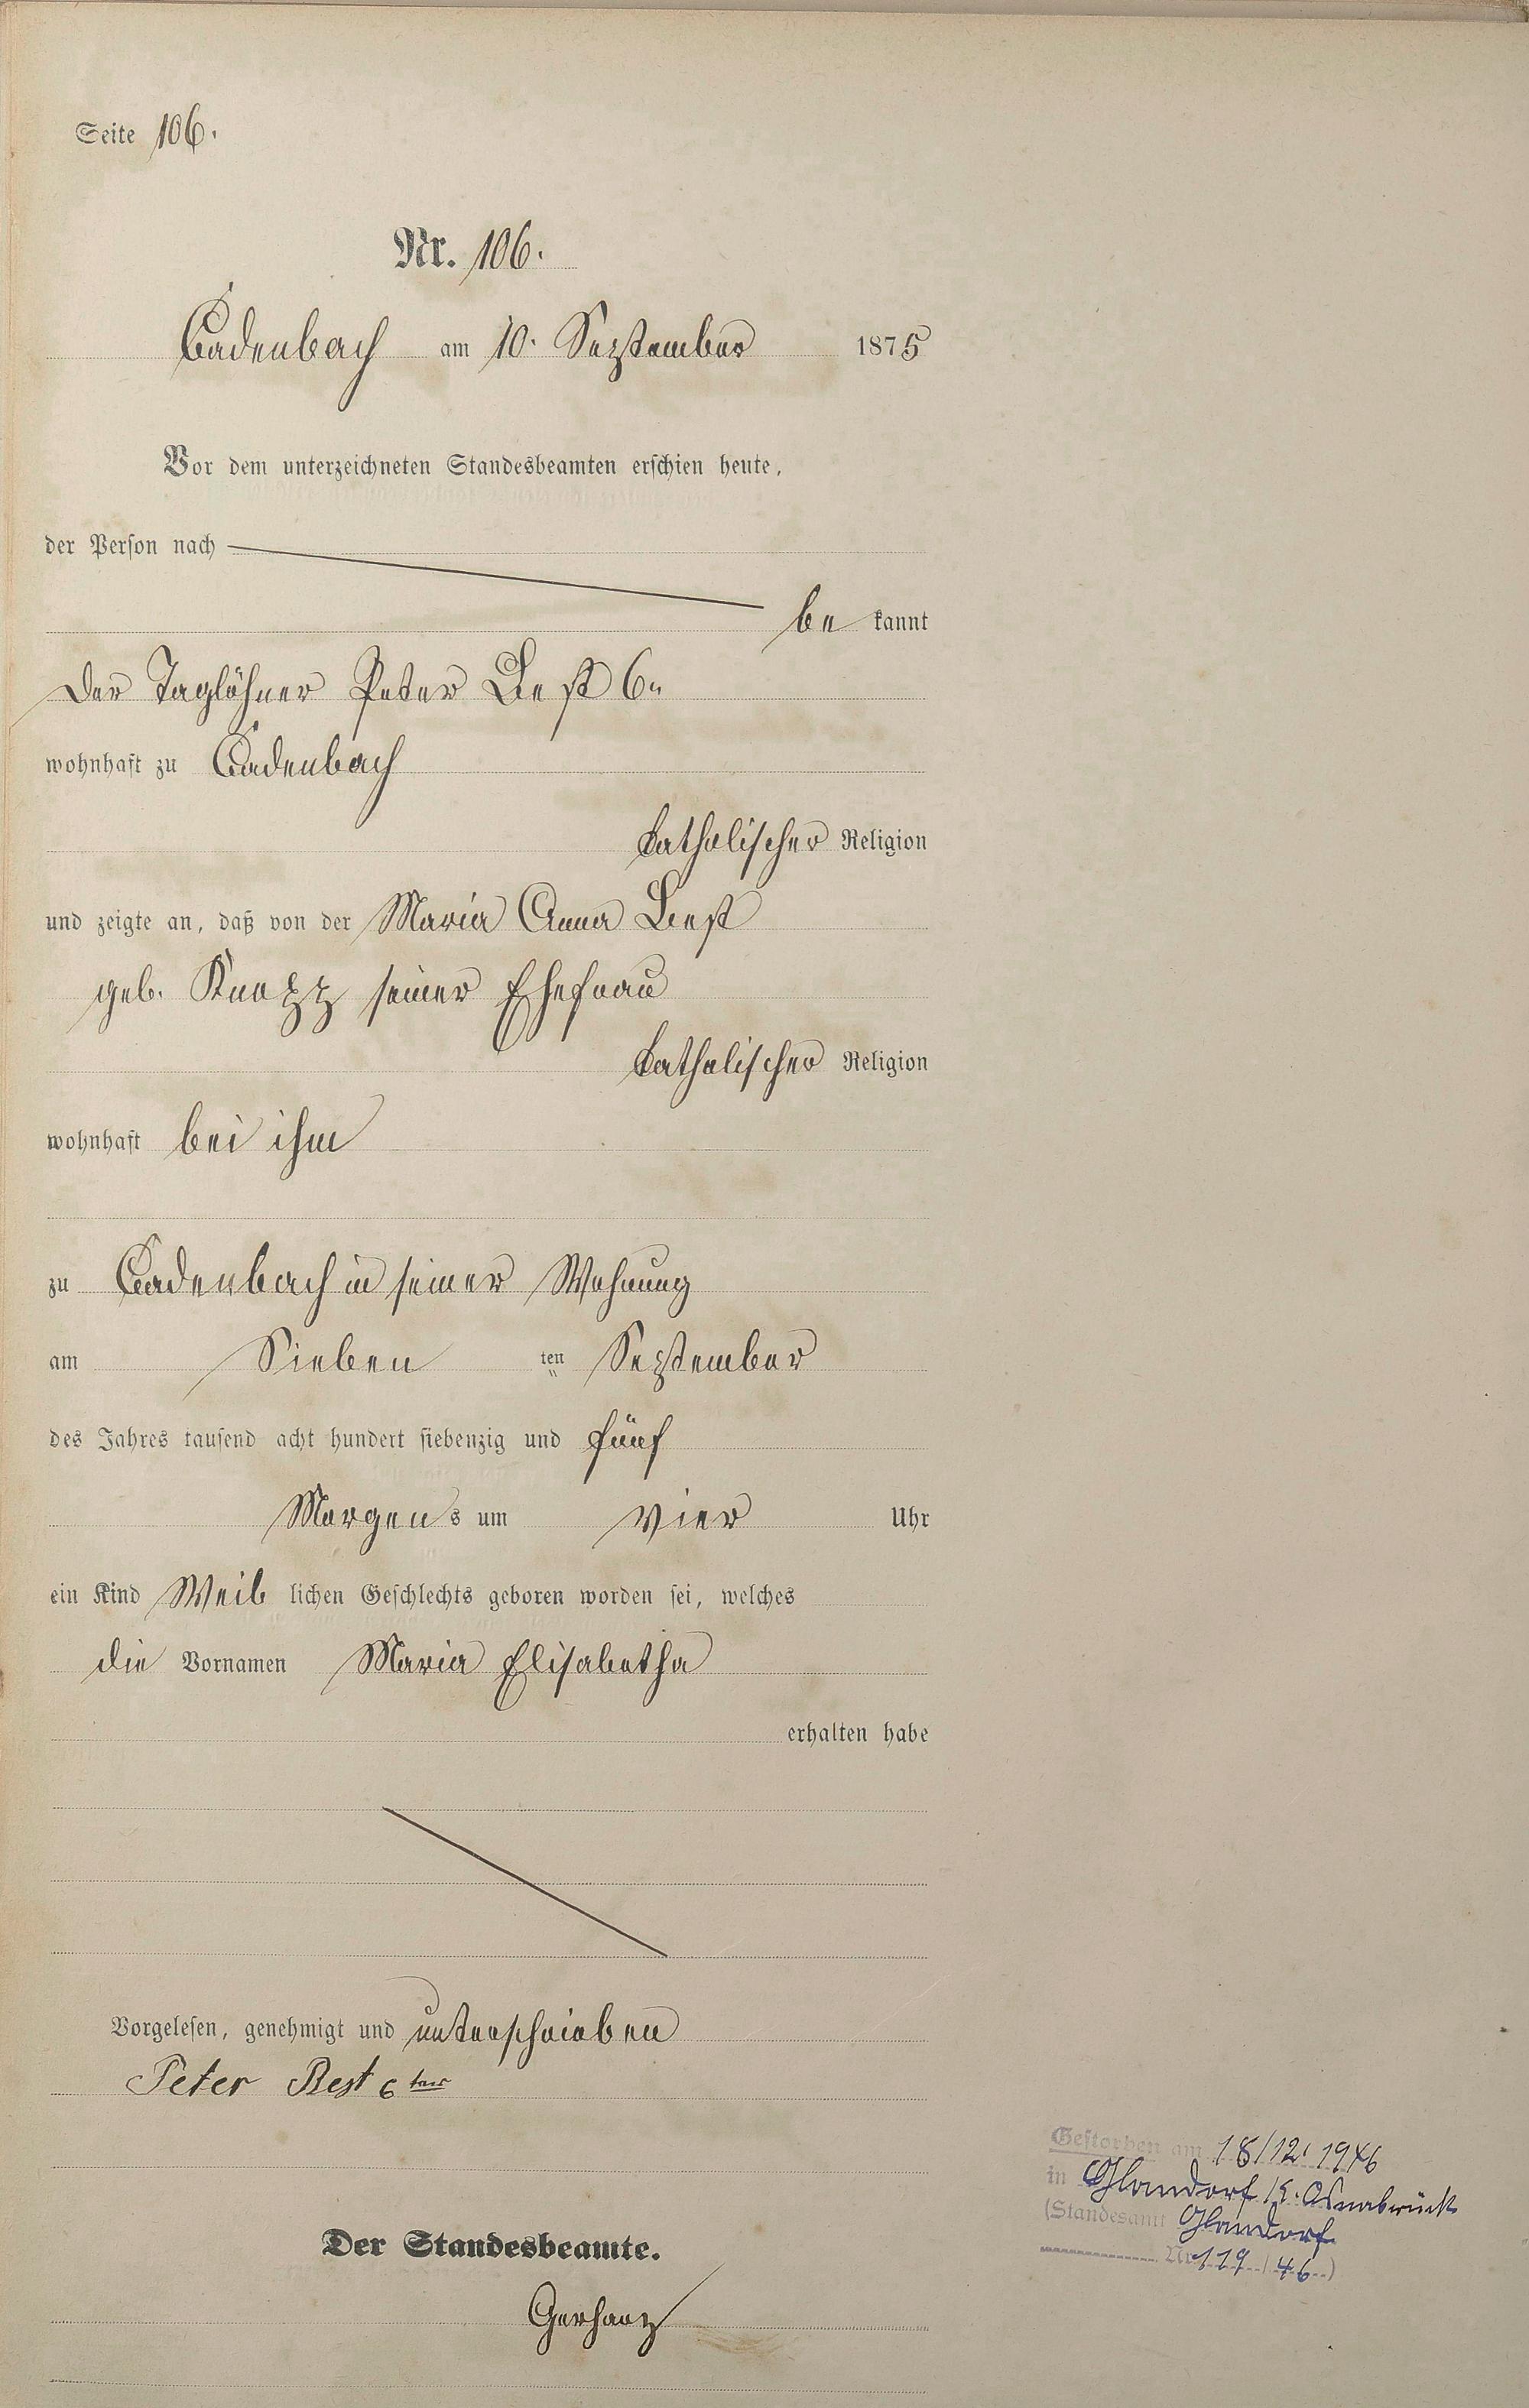 Seite 106.
Nr. 106.
Cadenbach am 10. September 1875
Vor dem unterzeichneten Standesbeamten erschien heute,
der Person nach
be kannt
der Taglöhner Peter Best 6"
wohnhaft zu Cadenbach
katholischer Religion
und zeigte an, daß von der Maria Anna Best
geb. Knopp seiner Ehefrau
katholischer Religion
wohnhaft bei ihm
zu Cadenbach in seiner Wohnung
am Sieben ten September
des Jahres tausend acht hundert siebenzig und fünf
Morgens um vier Uhr
ein Kind Weib lichen Geschlechts geboren worden sei, welches
die Vornamen Maria Elisabetha
erhalten habe
Vorgelesen, genehmigt und unterschrieben
Peter Best 6ter
Der Standesbeamte.
Gerharz
Gestorben am 18/12. 1946
in Glandorf K. Osnabrück
(Standesamt Glandorf
Nr 119 / 46)